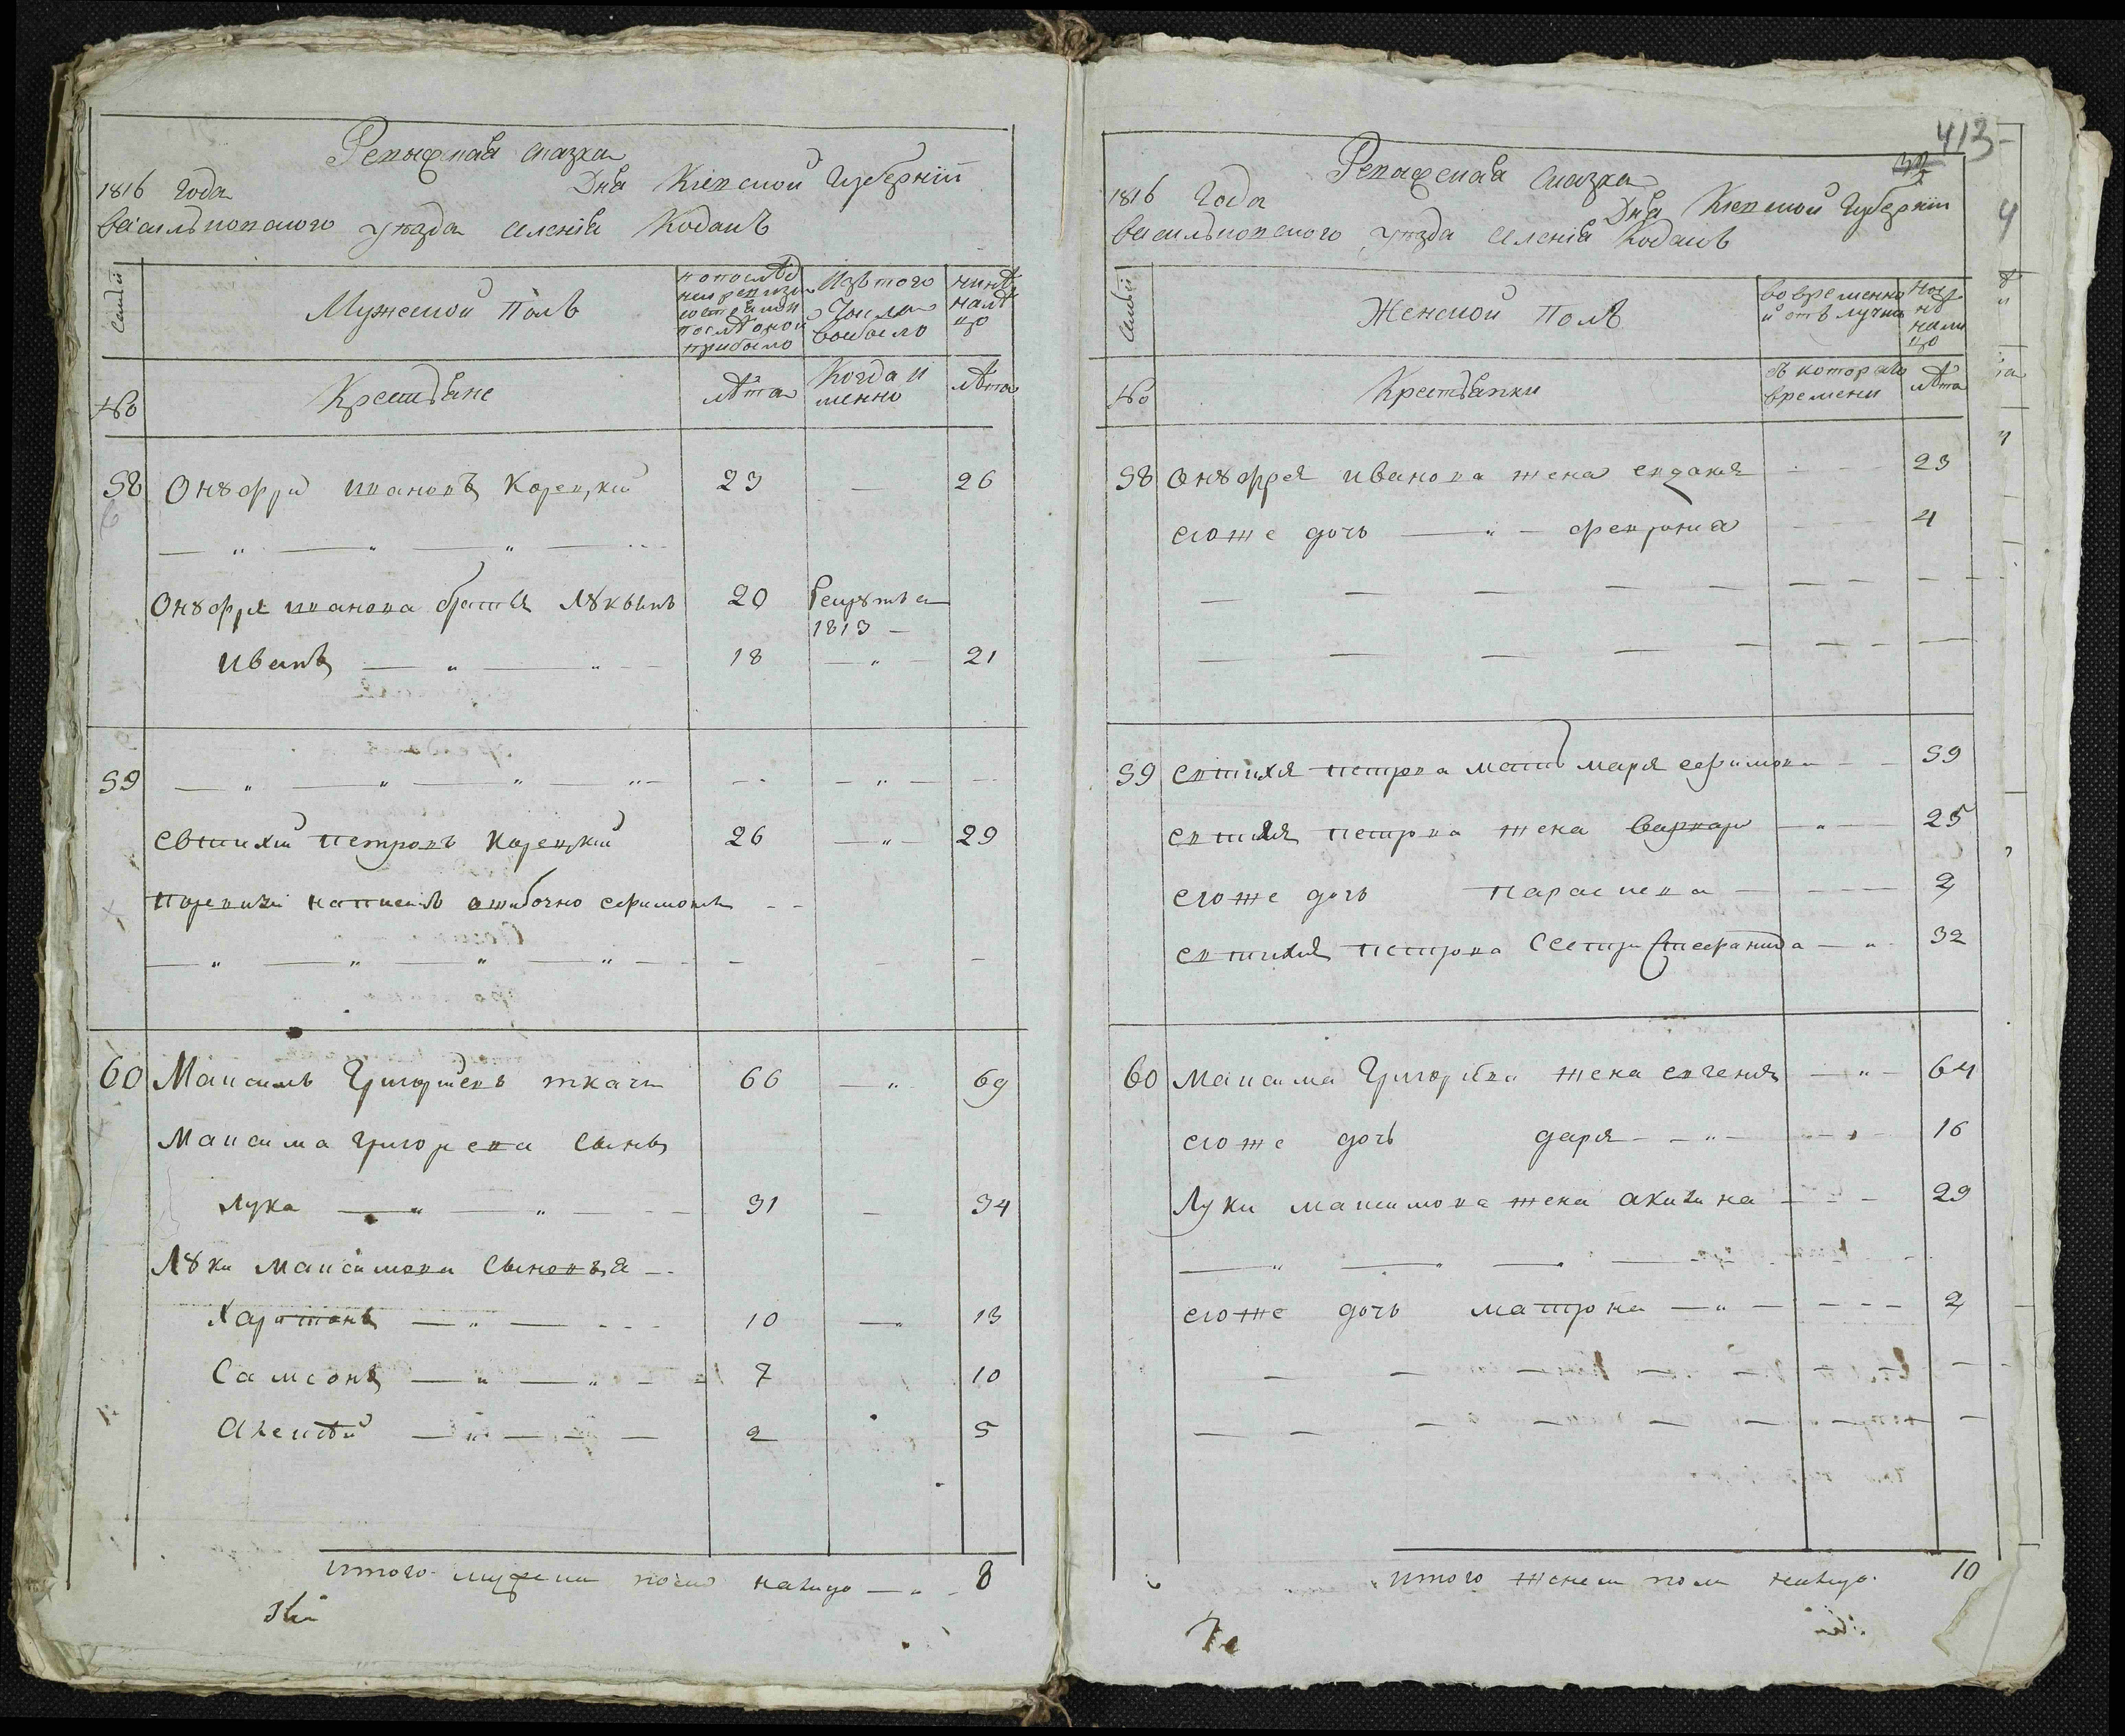 Ревизская сказка
1816 года Дня Киевской Губернїи
Васильковского уезда селения Кодакъ
Семьи
Мужеской полъ
по последней ревизїи состояло и после оной прибыло
Изъ того числа выбыло
ныне на лицо
№
Крестьяне
лѣта
Когда именно
лѣта
58 Онуфрій Ивановъ Корецкій 23 — 26
Онуфрія Иванова братья Лукьянъ 20 Рекрутъ в
1813
Иванъ 18 — 21
59
Евтихій Петровъ Корецкій 26 — 29
По ревизїи написанъ ошибочно Ефимовъ
60 Максимъ Григорьевъ ткачъ 66 — 69
Максима Григорева сынъ
Лука 31 — 34
Луки Максимова сыновья
Харитонъ 10 — 13
Самсонъ 7 10
Алексѣй 2 5
Итого мужеска пола налицо 8
413
Ревизская сказка
1816 года Дня Киевской Губернїи
Васильковского уезда селения Кодакъ
Семьи
Женской полъ
во временной отлучке
ныне на лицо
№
Крестьянки
съ которого времени
лѣта
58 Онуфрея Иванова жена Евдокия 23
его же дочь Феврония 4
59 Евтихия Петрова мать Марья Ефимова 59
Евтихия Петрова жена Варвара 25
его же дочь Параскева 2
Евтихия Петрова сестра Стефанида 32
60 Максима Григорьева жена Евгения 64
его же дочь Дарья 16
Луки Максимова жена Акилина 29
его же дочь Матрона 2
Итого женска пола налицо 10